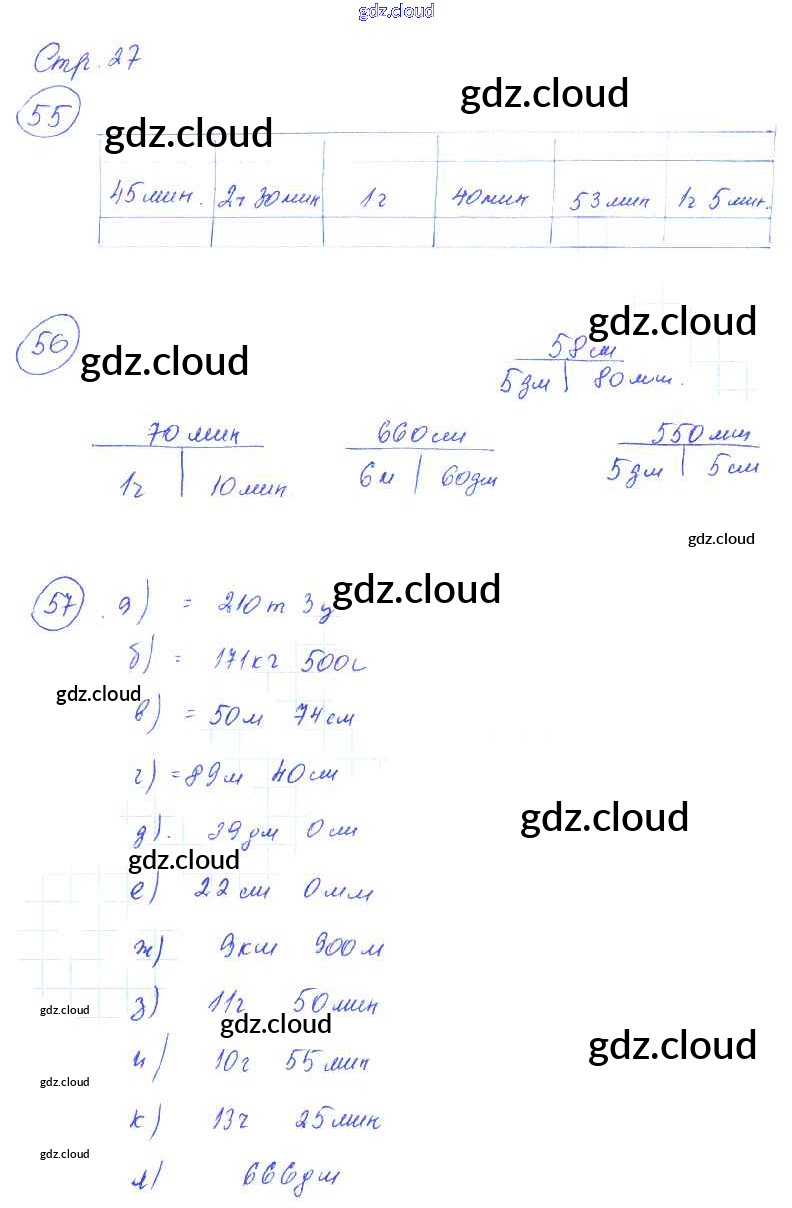 gdz.cloud
Стр. 27
55
gdz.cloud
gdz.cloud
45 мин. 2ч 30 мин 1ч 40 мин 53 мин 1ч 5 мин.
56
gdz.cloud
gdz.cloud
58 см
5 дм 80 мм.
70 мин 660 см 550 мм
1ч 10 мин 6 м 60 дм 5 дм 5 см
gdz.cloud
57. а) = 210 т 3 ц gdz.cloud
б) = 171 кг 500 г
gdz.cloud
в) = 50 м 74 см
г) = 89 м 40 см
gdz.cloud
д). 39 дм 0 см
gdz.cloud
е) 22 см 0 мм
ж) 9 км 900 м
з) 11ч 50 мин
gdz.cloud
gdz.cloud
gdz.cloud
и) 10ч 55 мин
gdz.cloud
к) 13ч 25 мин
gdz.cloud
л) 666 дм